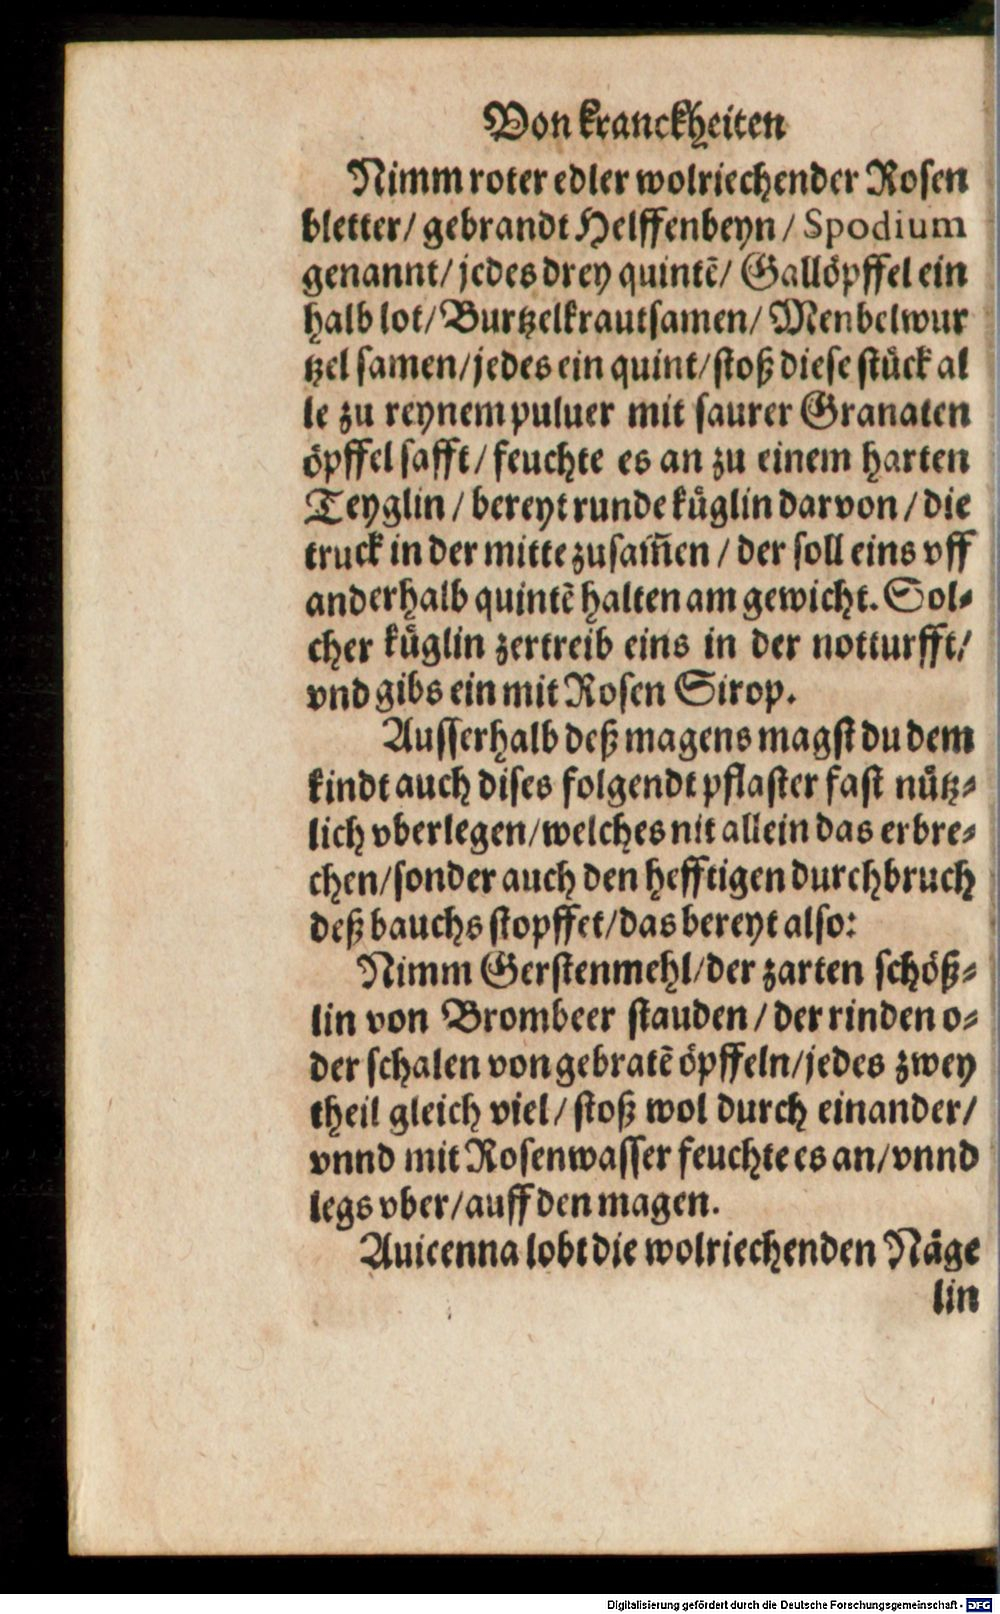 Von kranckheiten
Nimm roter edler wolriechender Rosen
bletter/ gebrandt Helffenbeyn/ Spodium
genannt/ jedes drey quintẽ/ Gallöpffel ein
halb lot/ Burtzelkrautsamen/ Menbelwur
tzel samen/ jedes ein quint/ stoß diese stuͤck al
le zu reynem puluer mit saurer Granaten
öpffel safft/ feuchte es an zu einem harten
Teyglin/ bereyt runde kuͤglin darvon/ die
truck in der mitte zusam̃en/ der soll eins vff
anderhalb quintẽ halten am gewicht. Sol⸗
cher kuͤglin zertreib eins in der notturfft/
vnd gibs ein mit Rosen Sirop.
Ausserhalb deß magens magst du dem
kindt auch dises folgendt pflaster fast nuͤtz⸗
lich vberlegen/ welches nit allein das erbre⸗
chen/ sonder auch den hefftigen durchbruch
deß bauchs stopffet/ das bereyt also:
Nimm Gerstenmehl/ der zarten schöß⸗
lin von Brombeer stauden/ der rinden o⸗
der schalen von gebratẽ öpffeln/ jedes zwey
theil gleich viel/ stoß wol durch einander/
vnnd mit Rosenwasser feuchte es an/ vnnd
legs vber/ auff den magen.
Auicenna lobt die wolriechenden Naͤge
lin
Digitalisierung gefördert durch die Deutsche Forschungsgemeinschaft - DFG